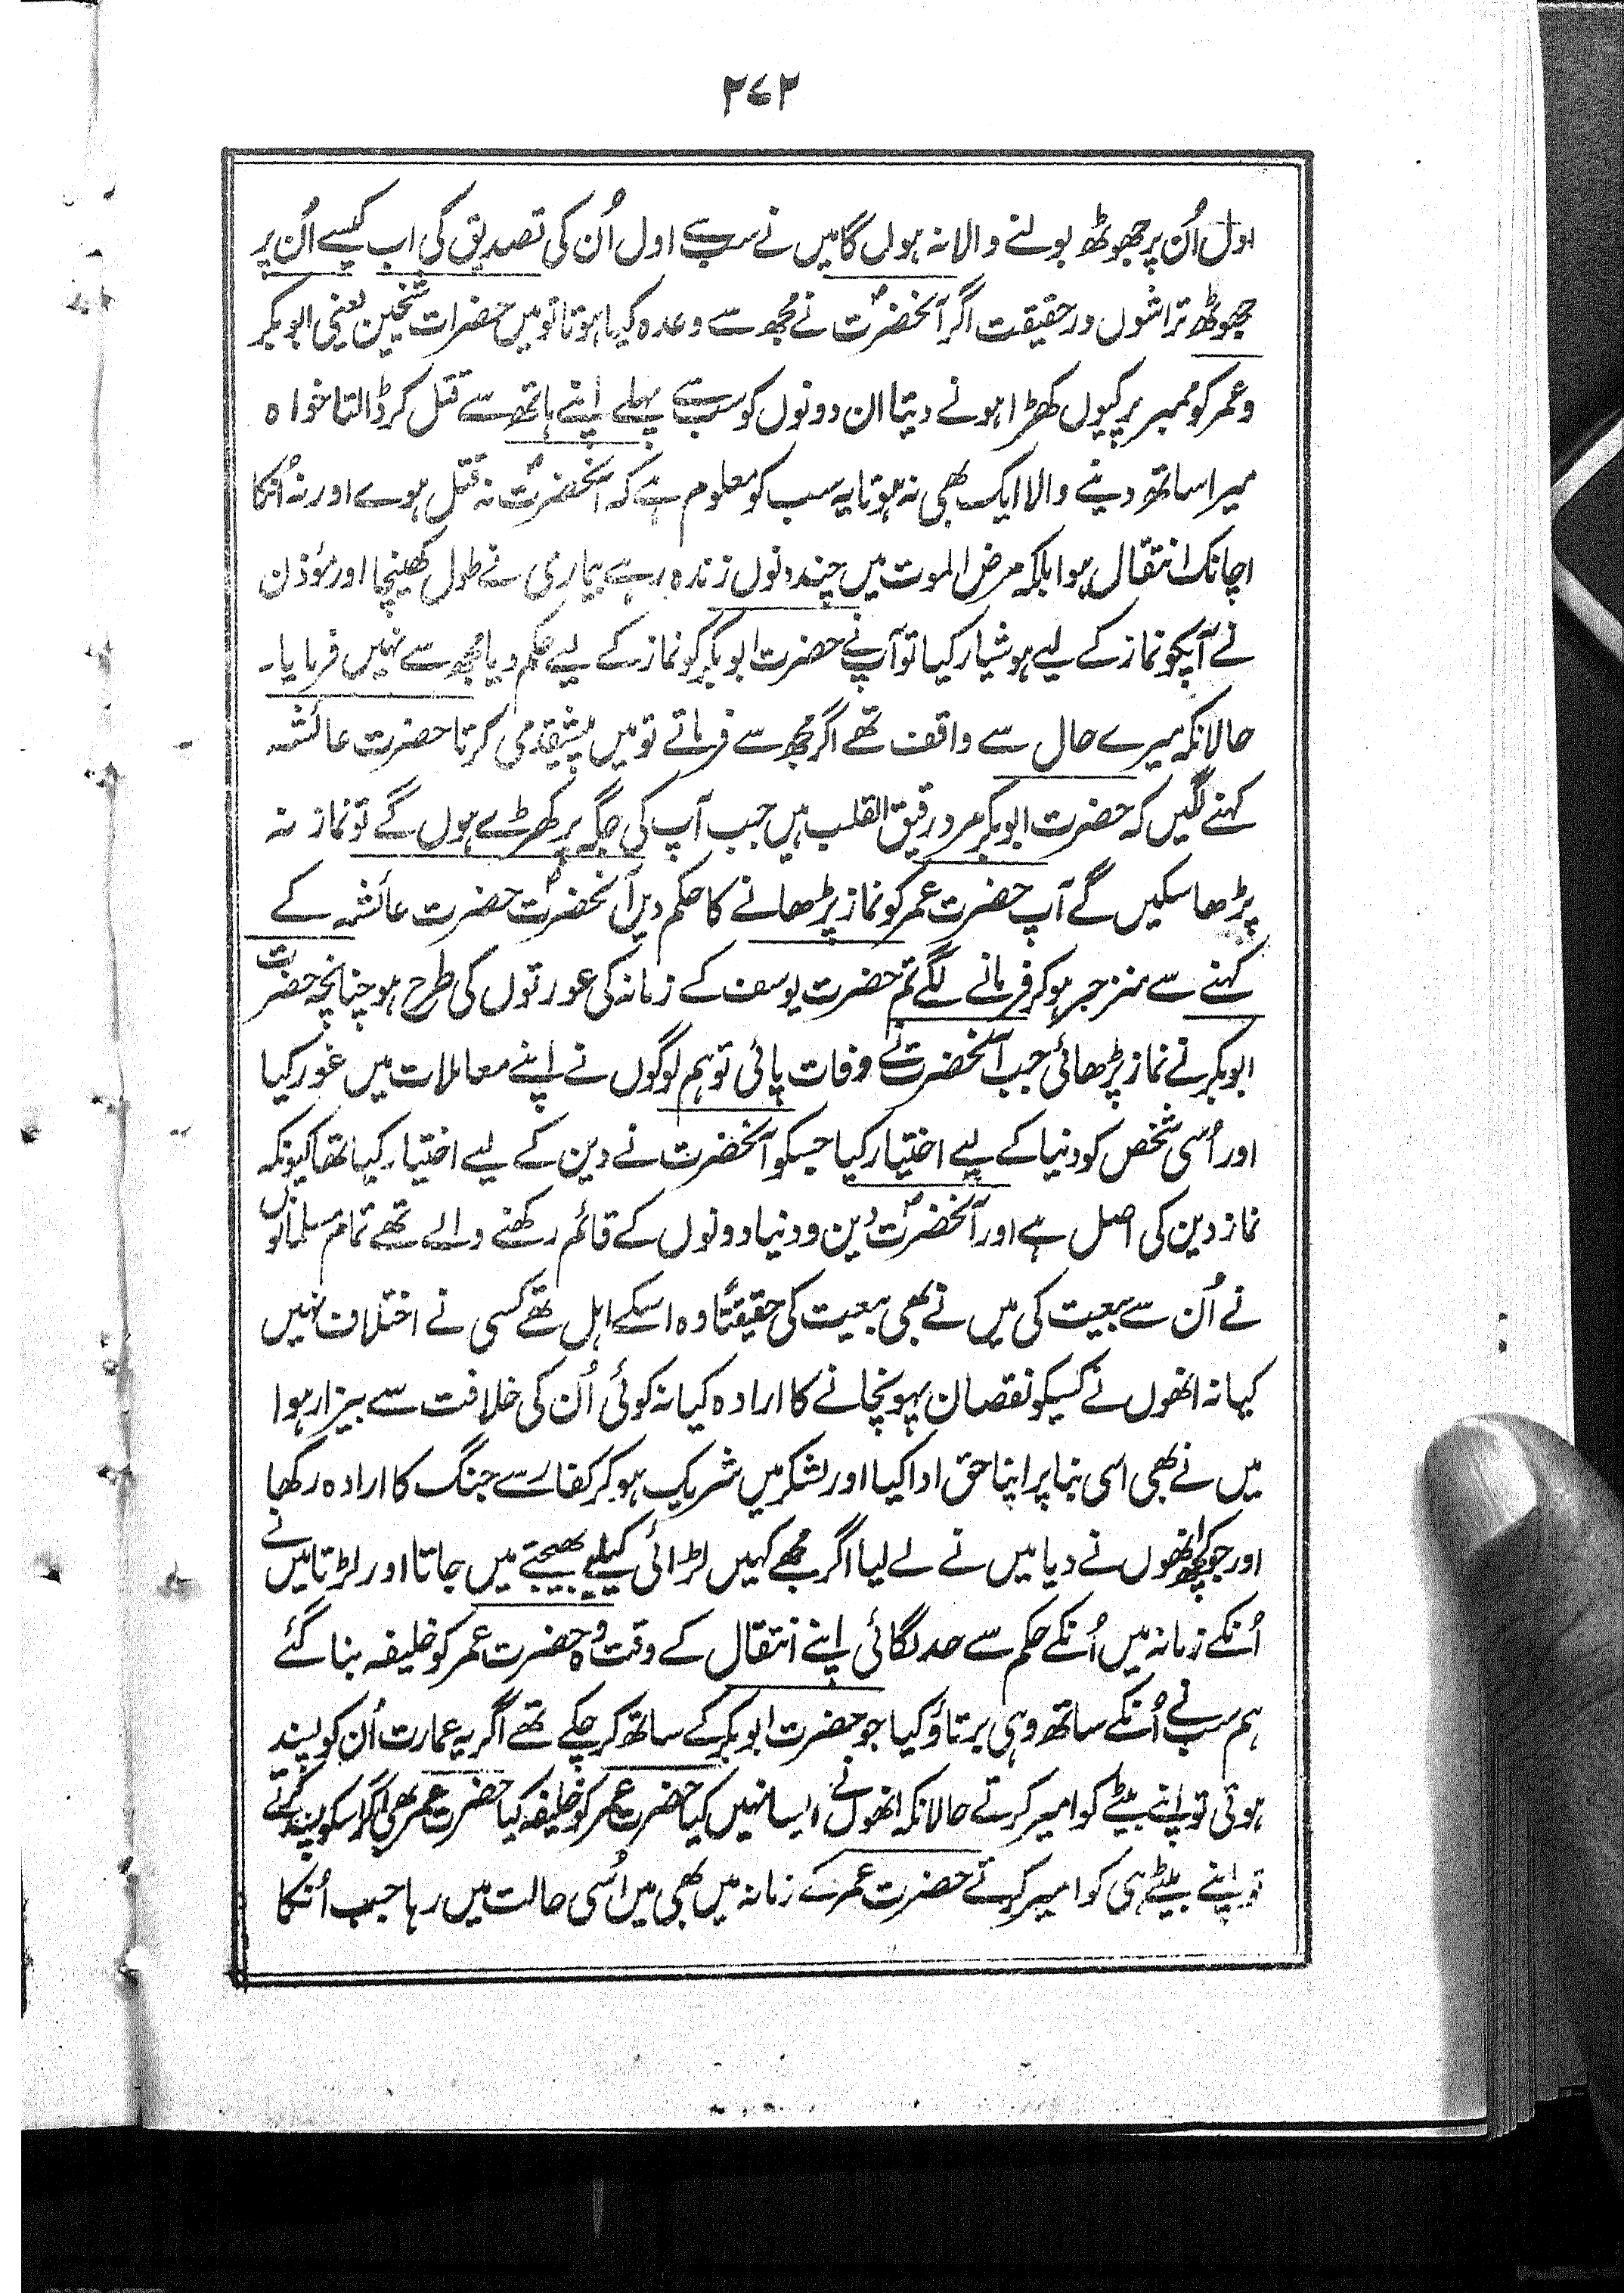 ۲۷۲
اول اُن پر جھوٹھ بولنے والا نہ ہوں گا میں نے سب سے اول اُن کی تصدیق کی اب کیسے اُن پر
جھوٹھ تراشوں درحقیقت اگر آنحضرتؐ نے مجھ سے وعدہ کیا ہوتا تو میں حضرات شیخین یعنی ابو بکر
و عمر کو ممبر پر کیوں کھڑا ہونے دیتا ان دونوں کو سب سے پہلے اپنے ہاتھ سے قتل کر ڈالتا خواہ
میرا ساتھ دینے والا ایک بھی نہ ہوتا یہ سب کو معلوم ہے کہ آنحضرتؐ نہ قتل ہوے اور نہ اُنکا
اچانک انتقال ہوا بلکہ مرض الموت میں چند دنوں زندہ رہے بیماری نے طول کھینچا اور مؤذن
نے آپکو نماز کے لیے ہوشیار کیا تو آپ نے حضرت ابو بکر کو نماز کے لیے حکم دیا مجھ سے نہیں فرمایا۔
حالانکہ میرے حال سے واقف تھے اگر مجھ سے فرماتے تو میں پیشقدمی کرتا حضرت عائشہ
کہنے لگیں کہ حضرت ابو بکر مرد رقیق القلب ہیں جب آپ کی جگہ پر کھڑے ہوں گے تو نماز نہ
پڑھا سکیں گے آپ حضرت عمر کو نماز پڑھانے کا حکم دیں آنحضرتؐ حضرت عائشہ کے
کہنے سے منزجر ہو کر فرمانے لگے تم حضرت یوسف کے زمانہ کی عورتوں کی طرح ہو چنانچہ حضرت
ابو بکر نے نماز پڑھائی جب آنحضرت نے وفات پائی تو ہم لوگوں نے اپنے معاملات میں غور کیا
اور اُسی شخص کو دنیا کے لیے اختیار کیا جسکو آنحضرت نے دین کے لیے اختیار کیا تھا کیونکہ
نماز دین کی اصل ہے اور آنحضرتؐ دین و دنیا دونوں کے قائم رکھنے والے تھے تمام مسلمانوں
نے اُن سے بیعت کی میں نے بھی بیعت کی حقیقتًا وہ اسکے اہل تھے کسی نے اختلاف نہیں
کیا نہ انھوں نے کسیکو نقصان پہونچانے کا ارادہ کیا نہ کوئی اُن کی خلافت سے بیزار ہوا
میں نے بھی اسی بنا پر اپنا حق ادا کیا اور لشکر میں شریک ہو کر کفار سے جنگ کا ارادہ رکھا
اور جو کچھ انھوں نے دیا میں نے لے لیا اگر مجھے کہیں لڑائی کیلیے بھیجتے میں جاتا اور لڑتا میں نے
اُنکے زمانہ میں اُنکے حکم سے حد لگائی اپنے انتقال کے وقت وُہ حضرت عمر کو خلیفہ بنا گئے
ہم سب نے اُنکے ساتھ وہی برتاؤ کیا جو حضرت ابو بکر کے ساتھ کر چکے تھے اگر یہ عمارت اُن کو پسند
ہوتی تو اپنے بیٹے کو امیر کرتے حالانکہ انھوں نے ایسا نہیں کیا حضرت عمر کو خلیفہ کیا حضرت عمر بھی اگر اسکو پسند کرتے
تو اپنے بیٹے ہی کو امیر کرتے حضرت عمر کے زمانہ میں بھی میں اُسی حالت میں رہا جب اُنکا